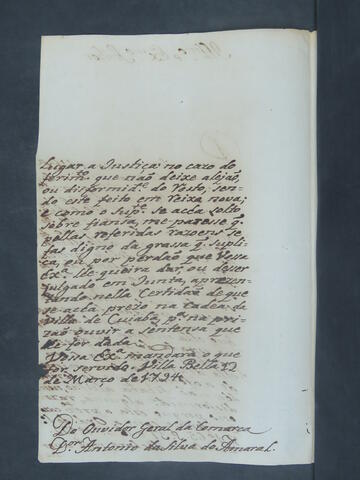 Lugar a Justiça no cazo do
ferim.to que não deixe alejaõ,
ou disformid.e do rosto, sen-
do este feito em reixa nova;
e como o Sup.e se acha solto
sobre fiança, me paresse q.
pellas referidas razoens se
fas digno da grassa q. suplí-
ca, ou por perdaõ que Vossa
Ex.ca lhe queira dar, ou dever
julgado em Junta, aprezen-
tando nella Certidaõ de que
se acha prezo na Cadea da
Villa de Cuiabá, p.a na pri-
zaõ ouvir a sentensa que
lhe for dada.
Vossa Ex.ca mandará o que
for servido. Villa Bella 12
de Março de 1794.
Do Ouvidor Geral da Comarca
D.or Antonio da Silva do Amaral.